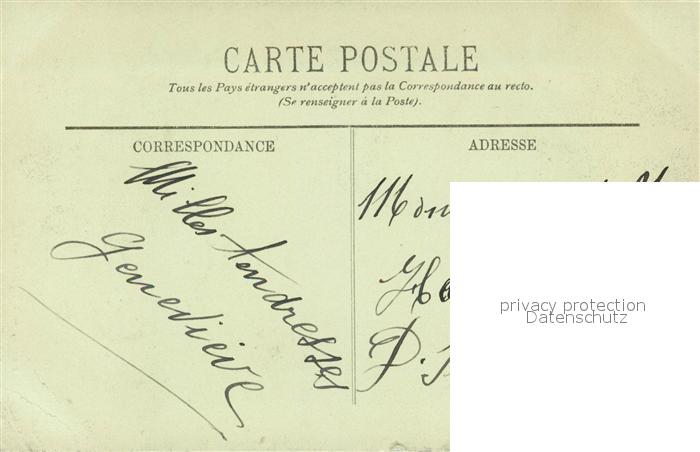 CARTE POSTALE
Tous les Pays étrangers n'acceptent pas la Correspondance au recto.
(Se renseigner à la Poste).
CORRESPONDANCE
Milles tendresses
Geneviève
ADRESSE
privacy protection
Datenschutz